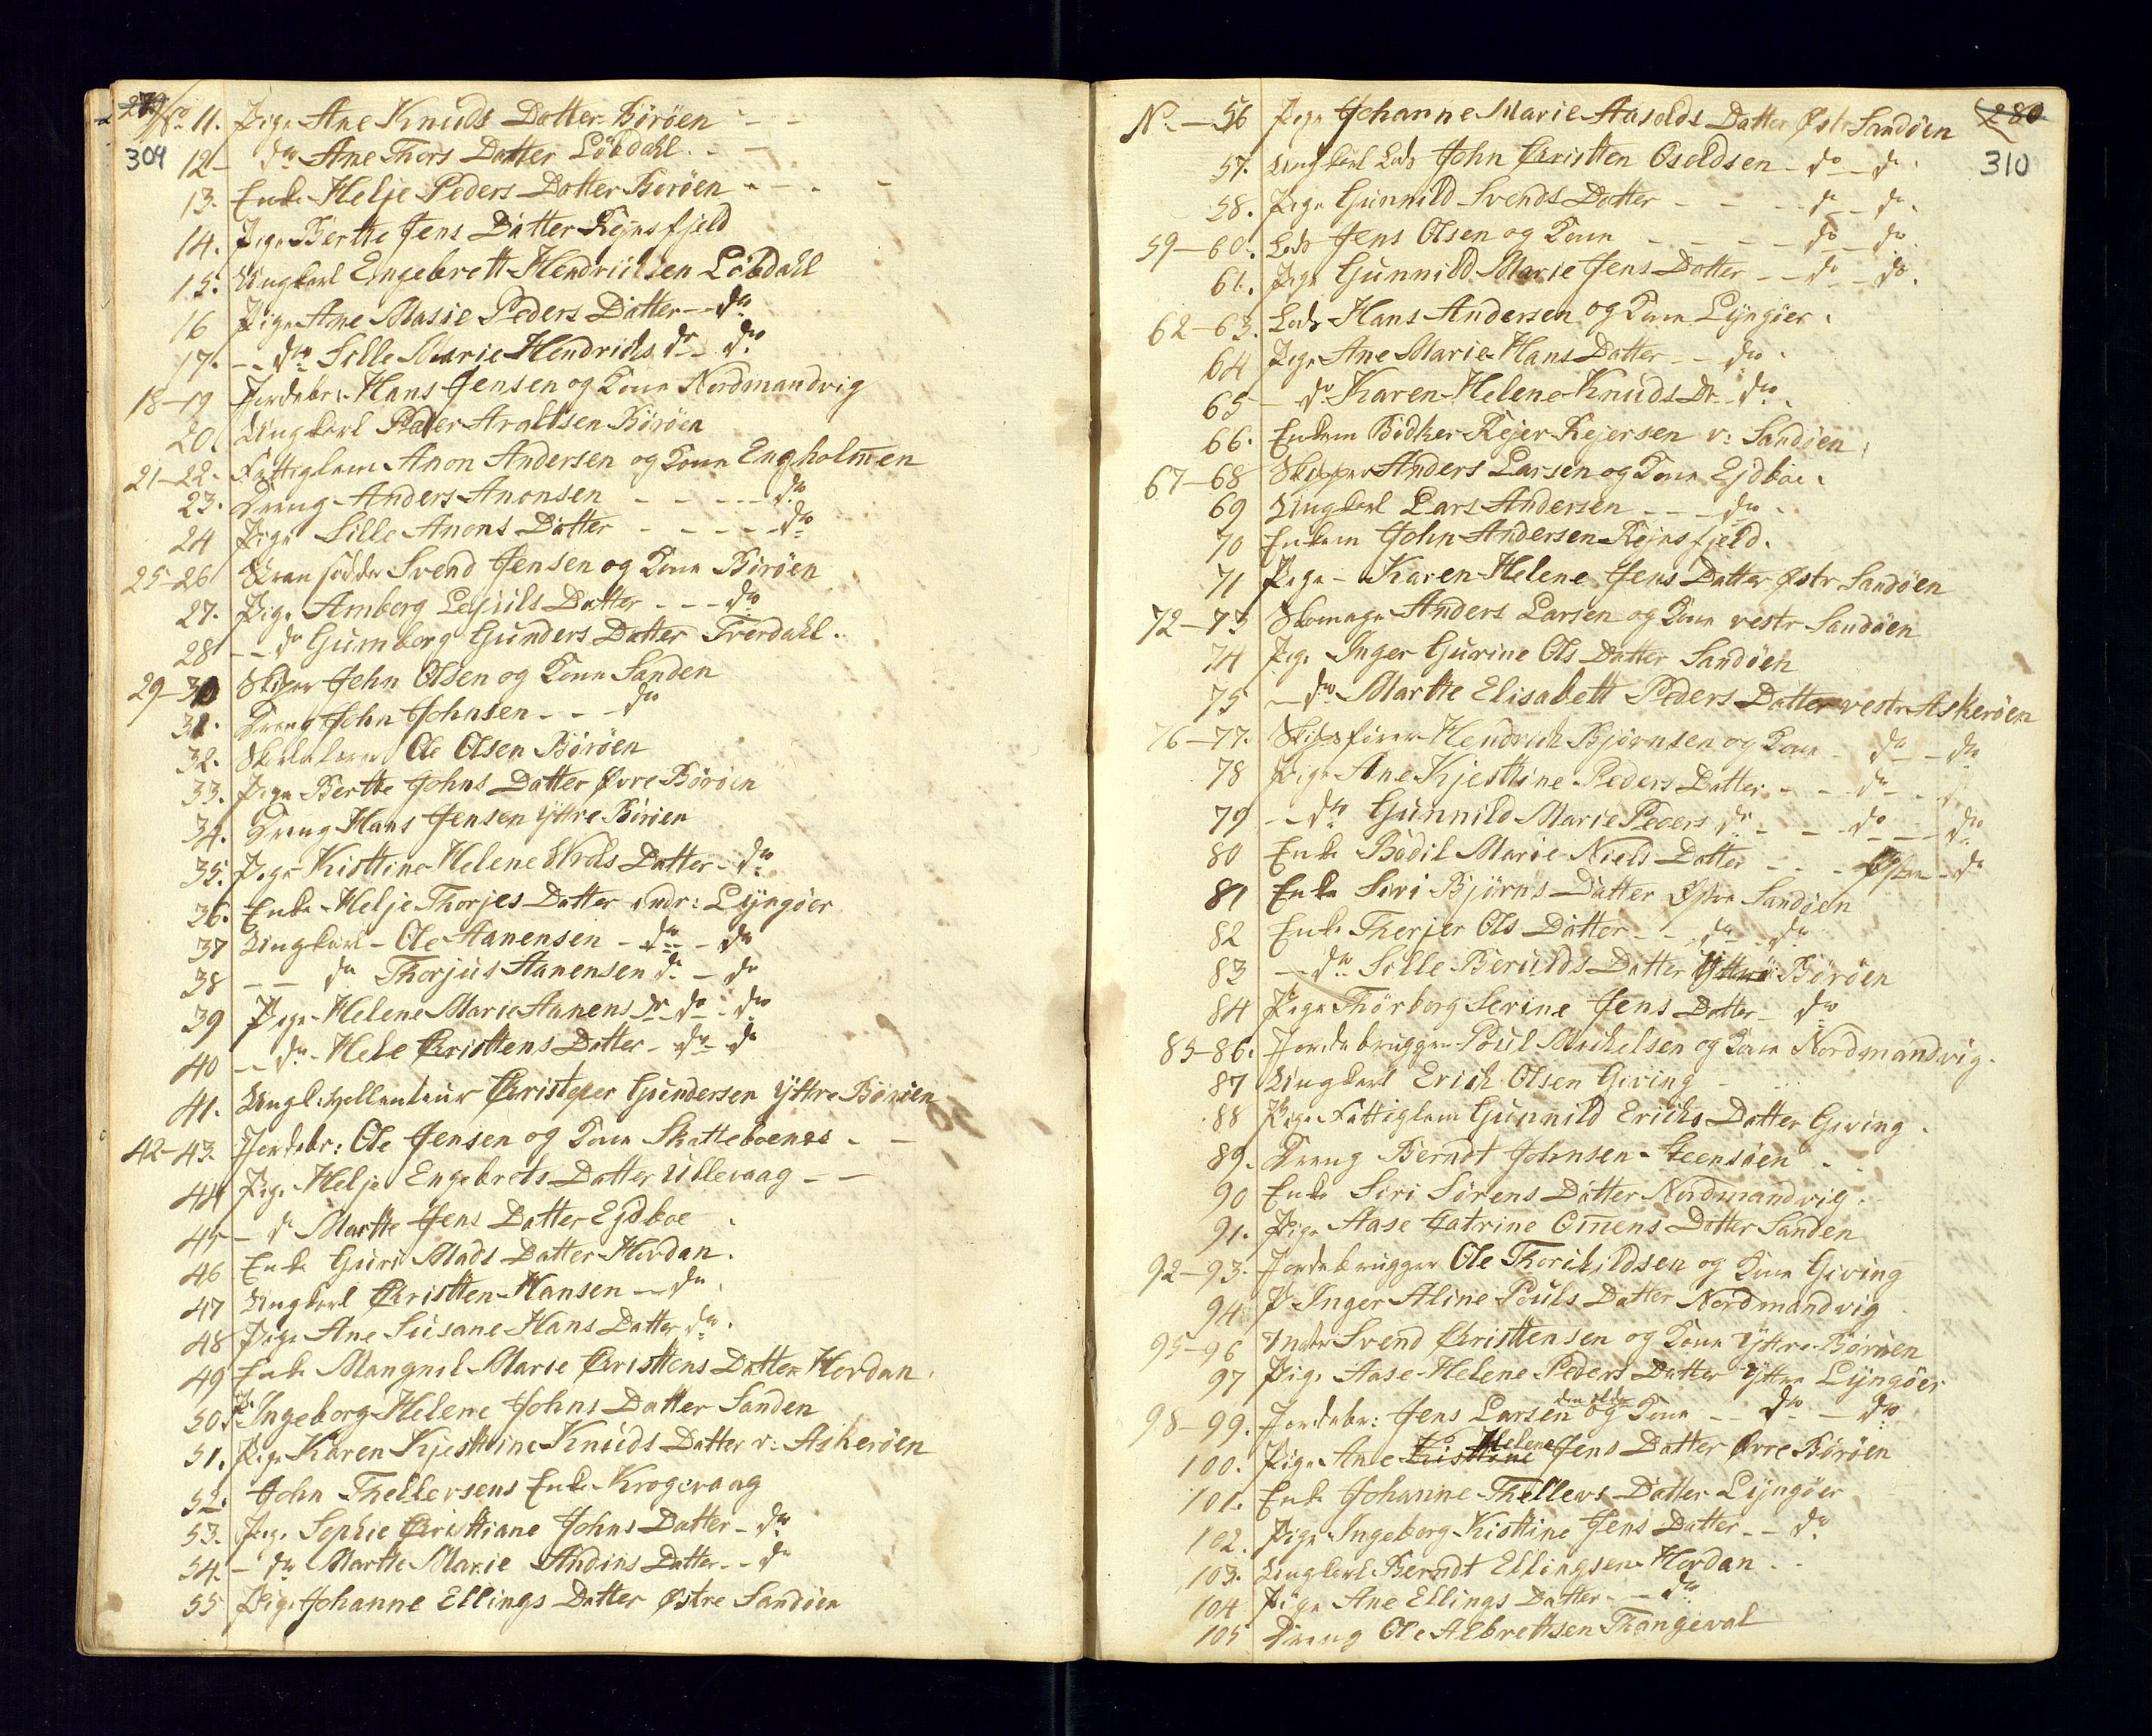 279
309
No 11. Pige Ane Knuds Datter Böröen - -
12 - do Ane Thors Datter Löbdahl. - -
13. Enke Helje Peders Datter Böröen - - . -
14. Pige Berthe Jens Datter Rejnsfjeld
15. Ungkarl Engebrett Hendrichsen Löbdahl
16 Pige Ane Marie Peders Datter - do
17. - - do Sille Marie Hendrichs do - do
18-19 Jordebr: Hans Jensen og Kone Nordmandvig
20. Ungkarl Peder Araldsen Böröen
21-22. Fattiglem Anon Andersen og Kone Engholmen
23. Dreng Anders Anonsen - - - - do
24 Pige Sille Anons Datter - - - - do
25-26 Svend Jensen og Kone Böröen
27. Pige Amberg Lejuls Datter - - - do
28 - - do Gumborg Gunders Datter Tverdahl.
29-30 Skiper John Olsen og Kone Sanden
31. Dreng John Johnsen - - - do
32. Skolelærer Ole Olsen Böröen
33. Pige Berthe Johns Datter Øvre Böröen
34. Dreng Hans Jensen Yttre Böröen
35. Pige Kisttine Helene Datter - do
36. Enke Helje Thorjes Datter indr: Lyngöer
37 Ungkarl - Ole Aanensen - do - do
38 - - do Thorjus Aanensen do - do
39 Pige Helene Marie Aanens Dr - do - do
40 - - do - Hele Christtens Datter - do - do
41. Ungk: Christoper Gundersen Yttre Böröen
42-43. Jordebr: Ole Jensen og Kone Skatteboenes - -
44 Pige Helje Engebrets Datter Ullevaag - -
45 - d Marthe Jens Datter Ejdboe .
46 Enke Guri Mads Datter Hordan.
47 Ungkarl Christten Hansen - do.
48 Pige Ane Susane Hans Datter do.
49 Enke Mangnil Marie Christtens Datter Hordan.
50. P: Ingeborg Helene Johns Datter Sanden
51. Pige Karen Kjesttine Knuds Datter v: Askeröen
52. John Thellersens Enke Krogevaag
53. Pige Sophie Christtiane Johns Datter - do
54. - do Marthe Marie Andins Datter - - do
55 Pige Johanne Ellings Datter Østre Sandöen
280
310
No - 56 Pige Johanne Marie Aasolds Datter Østr Sandöen
57. Ungkarl Lods John Christten Osoldsen - do - d.
58. Pige Gunnild Svends Datter - - - - do - do.
59-60. Lods Jens Olsen og Kone - - - - do - do.
61. Pige Gunnild Marie Jens Datter - - do - do.
62-63. Lods Hans Andersen og Kone Lyngöer.
64 Pige Ane Marie Hans Datter - - do.
65 - do Karen Helene Knuds Dr - do.
66. Enkem Bödker Rejer Rejersen v: Sandöen.
67-68 Skipper Anders Larsen og Kone Ejdboe.
69 Ungkarl Lars Andersen - - - do.
70 Enkem John Andersen Rejnsfjeld.
71 Pige - Karen Helene Jens Datter Østr Sandöen
72-73 Skomager Anders Larsen og Kone vestr Sandöen
74 Pige Inger Gurine Ols Datter Sandöen
75 - do Marthe Elisabett Peders Datter vestr Askeröen
76-77. Skipsfører Hendrich Bjørnsen og Kone - do - do
78 Pige Ane Kjesttine Peders Datter - - do - d
79 - - do Gunnild Marie Peders do - - do - - do
80 Enke Bodil Marie Niels Datter - - - Østre - do
81 Enke Siri Bjørns Datter Østre Sandöen
82 Enke Therjer Ols Datter - - do - do
83 - do Sille Berulds Datter Yttre Böröen
84 Pige Thörborg Serine Jens Datter - do
85-86. Jordebrugger Poul Michelsen og Kone Nordmandvig.
87 Ungkarl Erich Olsen Giving -
88 Pige Fattiglem Gunnild Erichs Datter Giving.
89. Dreng Berndt Johnsen Steensöen .
90 Enke Siri Sörens Datter Nordmandvig.
91. Pige Aase Catrine Omens Datter Sanden
92-93. Jordebrugger Ole Thorkildsen og Kone Giving
94. P Inger Aline Pouls Datter Nordmandvig
95-96 Svend Christtensen og Kone Yttre Böröen
97 Pige Aase Helene Peders Datter Yttre Lyngöer
98-99. Jordebr: Jens Larsen den eldre og Kone - - do - do
100. Pige Ane Kisttine Helene Jens Datter Øvre Böröen
101. Enke Johanne Thellers Datter Lyngöer
102. Pige Ingeborg Kisttine Jens Datter - - do
103. Ungkarl Berndt Ellingsen Hordan . .
104 Pige Ane Ellings Datter - - do
105 Dreng Ole Albrettsen Thangeval